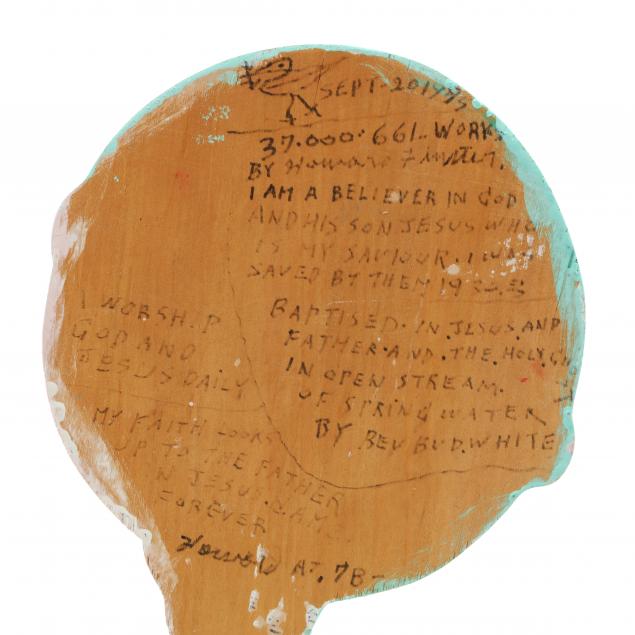 SEPT-20 1995
37.000.661. WORKS
BY Howard Finster.
I AM A BELIEVER IN GOD
AND HIS SON JESUS WHO
IS MY SAVIOUR. I WAS
SAVED BY THEM 19
BAPTISED. IN. JESUS. AND
FATHER. AND. THE. HOLY
IN OPEN STREAM.
OF SPRING WATER
BY REV BUD. WHITE
I WORSHIP
GOD AND
JESUS DAILY
MY FAITH LOOKS
UP TO THE FATHER
IN JESUS. NAME.
FOREVER
Howard AT. 78-